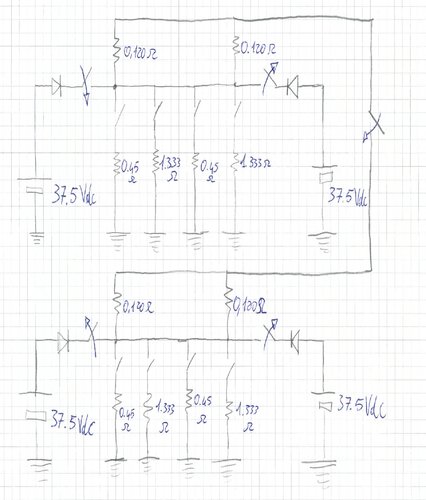 0,120Ω
0.120Ω
0.45
Ω
1.333
Ω
0.45
Ω
1.333Ω
37.5Vdc
37.5Vdc
0,120Ω
0,120Ω
0.45
Ω
1.333
Ω
0.45
Ω
1.333
Ω
37.5Vdc
37.5Vdc